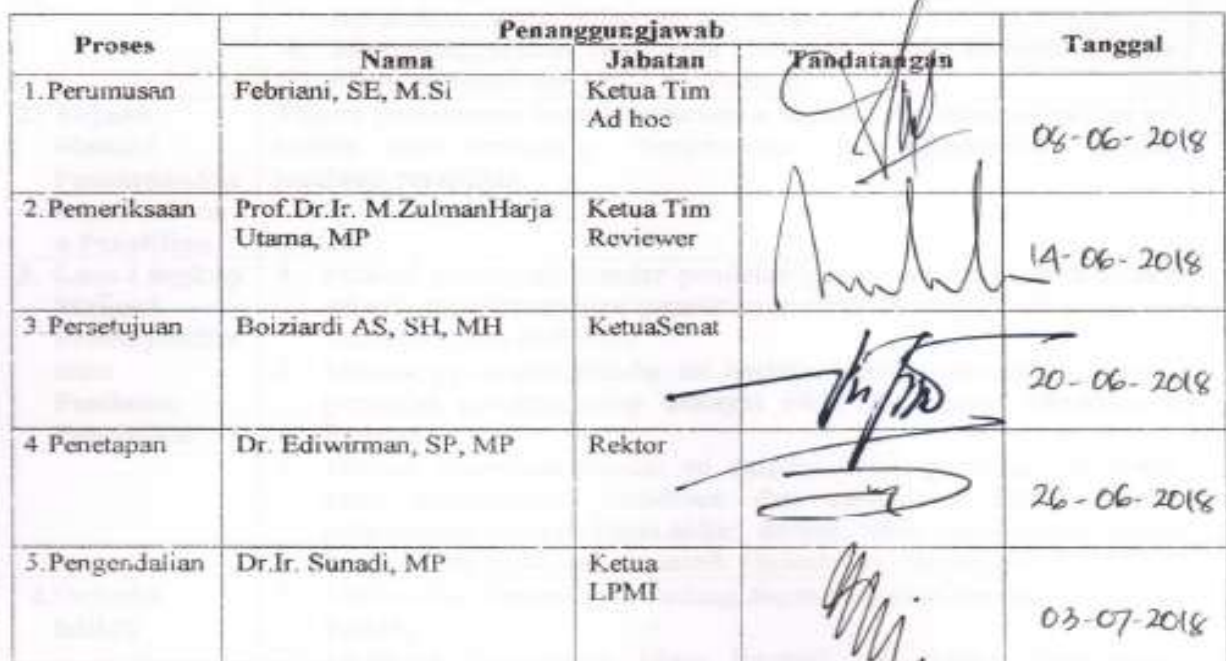 Proses Penanggungjawab Tanggal
Nama Jabatan Tandatangan
1. Perumusan Febriani, SE, M.Si Ketua Tim
Ad hoc
08-06-2018
2. Pemeriksaan Prof.Dr.Ir. M.ZulmanHarja Ketua Tim
Utama, MP Reviewer
14-06-2018
3 Persetujuan Boiziardi AS, SH, MH KetuaSenat
20-06-2018
4 Penetapan Dr. Ediwirman, SP, MP Rektor
26-06-2018
5. Pengendalian Dr.Ir. Sunadi, MP Ketua
LPMI
03-07-2018